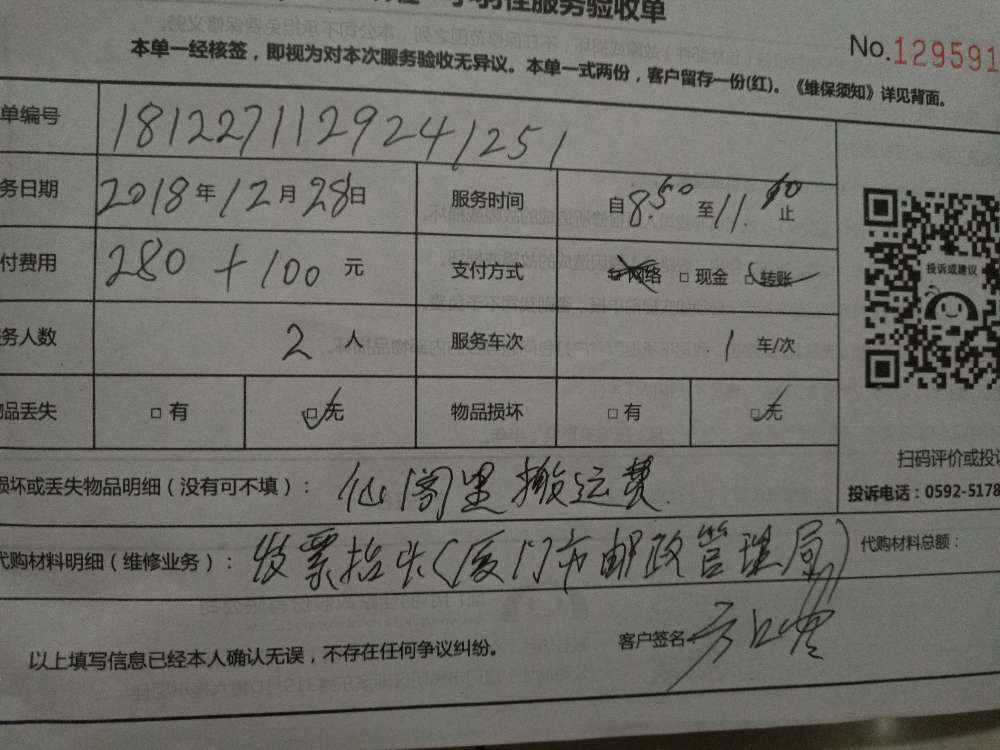 服务验收单
No.129591
本单一经核签，即视为对本次服务验收无异议。本单一式两份，客户留存一份(红)。《维保须知》详见背面。
单编号 181227112924/1251
务日期 2018年12月28日 服务时间 自8.50至11.00止
付费用 280+100元 支付方式 □网络 □现金 □转账
务人数 2人 服务车次 1车/次
品丢失 □有 □无 物品损坏 □有 □无
投诉或建议
扫码评价或投诉
投诉电话：0592-5178
损坏或丢失物品明细（没有可不填）： 仙阁里搬运费
代购材料明细（维修业务）： 发票抬头（厦门市邮政管理局） 代购材料总额：
以上填写信息已经本人确认无误，不存在任何争议纠纷。 客户签名